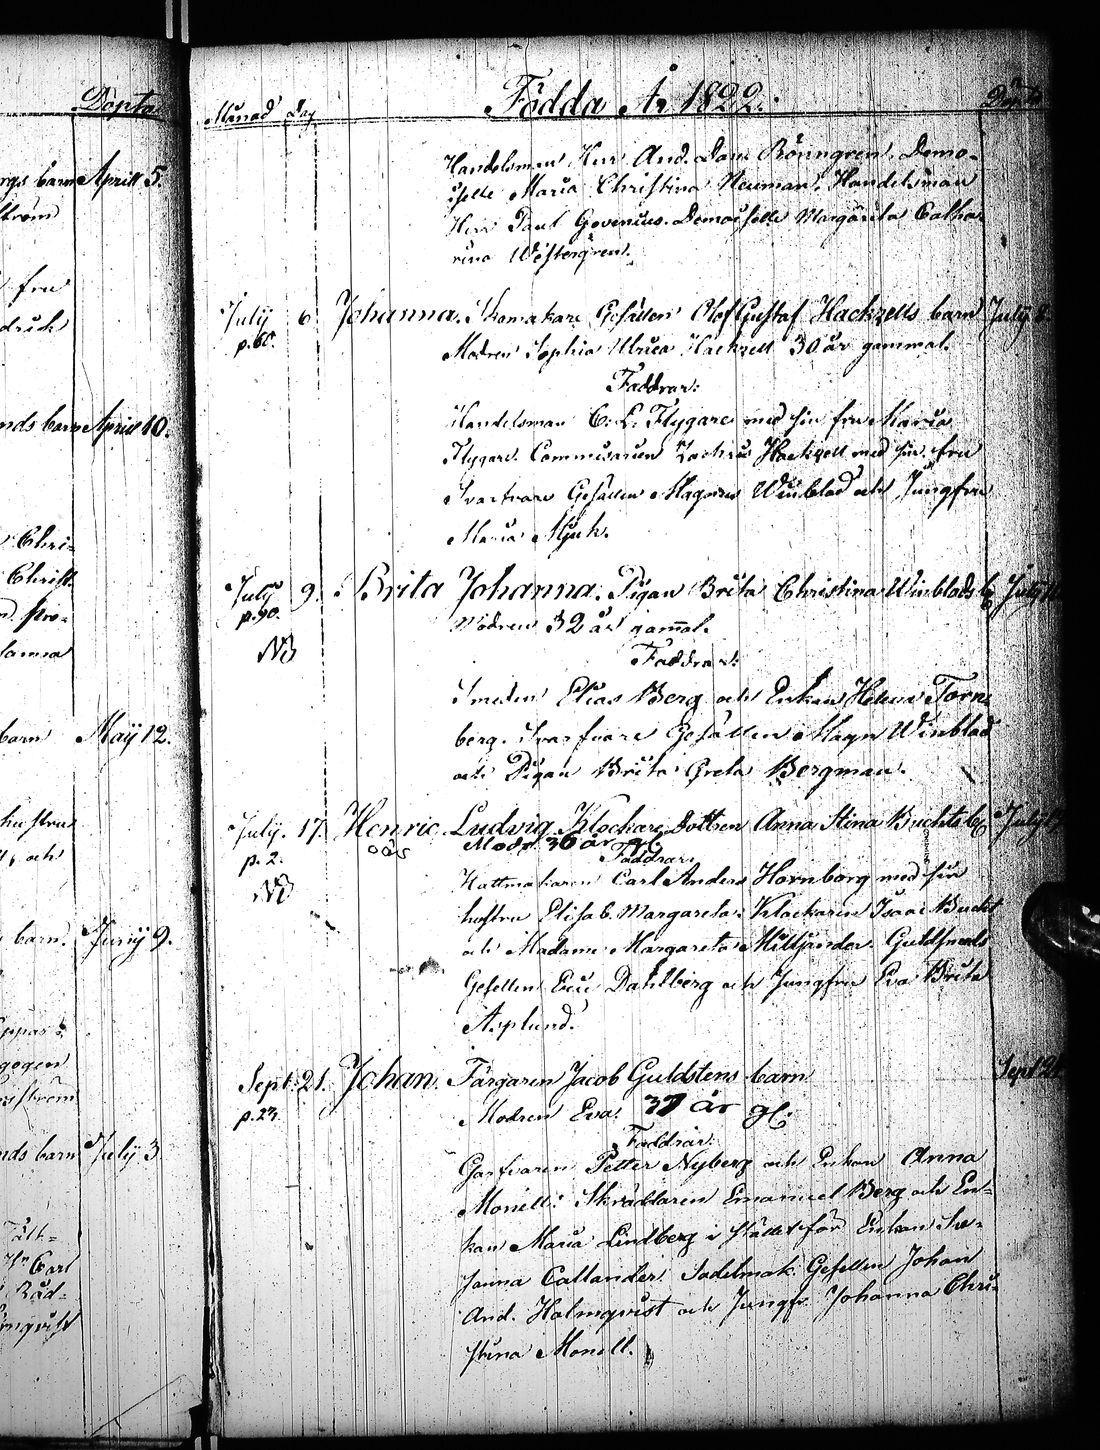 Döpta
rgs barn Aprill 5.
ström
fru
drich
nds barn Aprill 10.
Chri-
Christ.
pro-
barn Maij 12.
hustru
och
barn. Junij 9.
gogen
ström
nds barn Julij 3
Carl
Råd-
mqvist
Månad Dag Födda År 1822. Döpta
Handelsman Herr And. Dan. Rönngren. Demo-
iselle Maria Christina Neuman. Handelsman
Herr Paul Govenius. Demoiselle Margareta Catha-
rina Westergren.
Julij 6. Johanna. Skomakare Gesällen Olof Gustaf Hackzells barn Julij 8.
p. 60. Modren Sophia Ulrica Hackzell 30 år gammal.
Faddrar:
Handelsman C. L. Flygare med sin fru Maria
Flygare. Commisarien Zachris Hackzell med sin fru
Svarfvare Gesällen Magnus Winblad och Jungfru
Maria Mjuk.
Julij 9. Brita Johanna. Pigan Brita Christina Winblads b. Julij
p. 90. Modren 32 år gamal.
NB Faddrar:
Smeden Elias Berg och Enkan Helena Torn-
berg. Svarfvare Gesällen Magn Winblad
och Pigan Brita Greta Bergman.
Julij. 17. Henric Ludvig Klockare Dottren Anna Stina Buchts b. Julij
p. 2. oäs Modr. 36 år gl.
NB Faddrar.
Hattmakaren Carl Anders Hornborg med sin
hustru Elisab. Margareta. Klockaren Isaac Bucht
och Madame Margareta Milljander. Guldsmeds
Gesellen Eric Dahlberg och Jungfru Eva Brita
Asplund.
Sept. 21. Johan. Färgaren Jacob Guldstens barn Sept 2
p. 23. Modren Eva. 37 år gl.
Faddrar.
Garfvaren Petter Nyberg och Enkan Anna
Monell. Skräddaren Emanuel Berg och En-
kan Maria Lindberg i stället för Enkan Su-
sanna Callander. Sadelmak. Gesellen Johan
And. Holmqvist och Jungfr. Johanna Chri-
stina Monell.